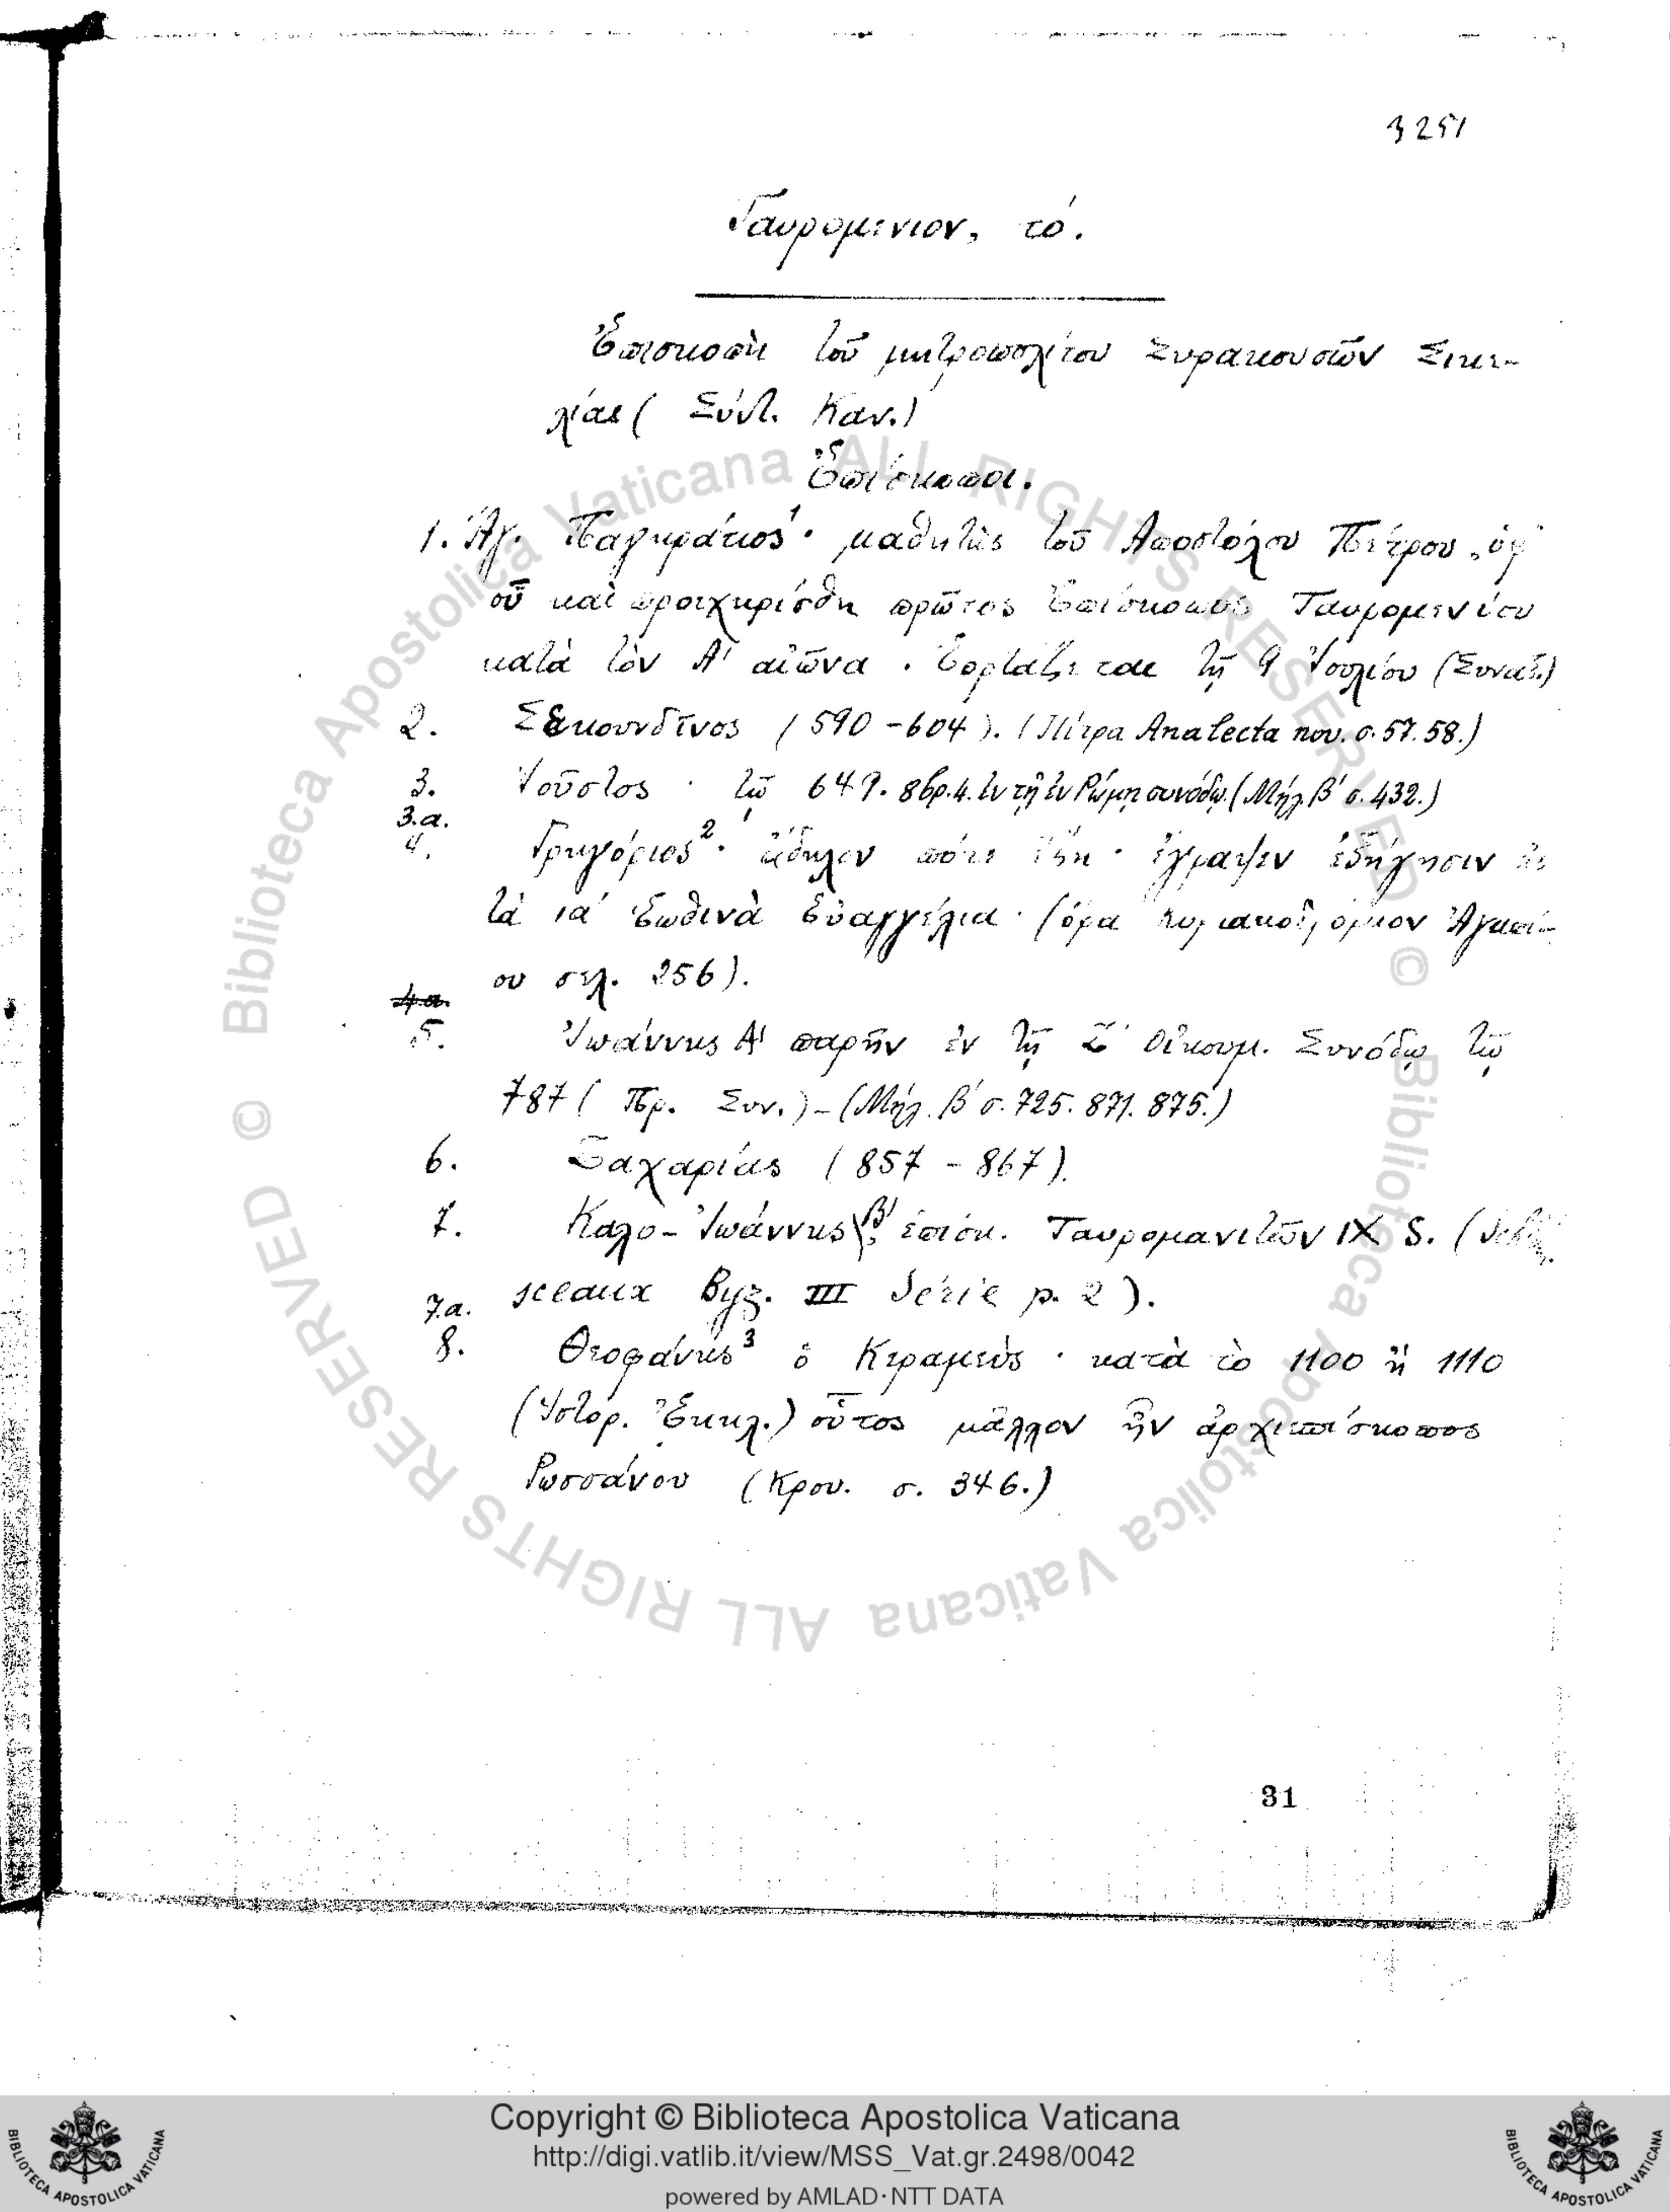 3251
Ταυρομένιον, τό.
Ἐπισκοπὴ τοῦ μητροπολίτου Συρακουσῶν Σικε-
λίας ( Σύντ. Καν.)
Ἐπίσκοποι.
1. Ἅγ. Παγκράτιος¹· μαθητὴς τοῦ Ἀποστόλου Πέτρου, ὑφ'
οὗ καὶ προεχειρίσθη πρῶτος Ἐπίσκοπος Ταυρομενίου
κατὰ τὸν Α' αἰῶνα. Ἑορτάζεται τῇ 9 Ἰουλίου (Συναξ.)
2. Σεκουνδῖνος (590-604). (Πίτρα Analecta nov. σ. 57. 58.)
3. Ἰοῦστος · τῷ 649. 8βρ. 4. ἐν τῇ ἐν Ρώμῃ συνόδῳ. (Μήλ. β' σ. 432.)
3.α.
4. Γρηγόριος²· ἄδηλον πότε ἔζη· ἔγραψεν ἐξήγησιν εἰς
τὰ ια' Ἑωθινὰ Εὐαγγέλια· (ὅρα
ου σελ. 256).
4.α.
5. Ἰωάννης Α' παρῆν ἐν τῇ Ζ' Οἰκουμ. Συνόδῳ τῷ
787 ( Πρ. Συν.) - (Μήλ. β' σ. 725. 871. 875.)
6. Ζαχαρίας (857 - 867).
7. Καλο-Ἰωάννης β', ἐπίσκ. Ταυρομανιτῶν IX S. (
sceaux Byz. III Série p. 2 ).
7.α.
8. Θεοφάνης³ ὁ Κεραμεὺς · κατὰ τὸ 1100 ἢ 1110
(Ἱστορ. Ἐκκλ.) οὗτος μᾶλλον ἦν ἀρχιεπίσκοπος
Ρωσσάνου (Κρου. σ. 346.)
31
© Biblioteca Apostolica Vaticana ALL RIGHTS RESERVED © Biblioteca Apostolica Vaticana ALL RIGHTS RESERVED
Copyright © Biblioteca Apostolica Vaticana
http://digi.vatlib.it/view/MSS_Vat.gr.2498/0042
powered by AMLAD·NTT DATA
BIBLIOTECA APOSTOLICA VATICANA
BIBLIOTECA APOSTOLICA VATICANA